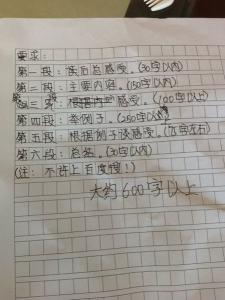 要求:
第一段:读后总感受。(30字以内)
第二段:主要内容。(150字以内)
第三段:感受。(100字以上)
第四段:举例子。(250字)
第五段:根据例子谈感受。(字左右)
第六段:总结。(30字以内)
(注:不许上百度搜!)
大约600字以上